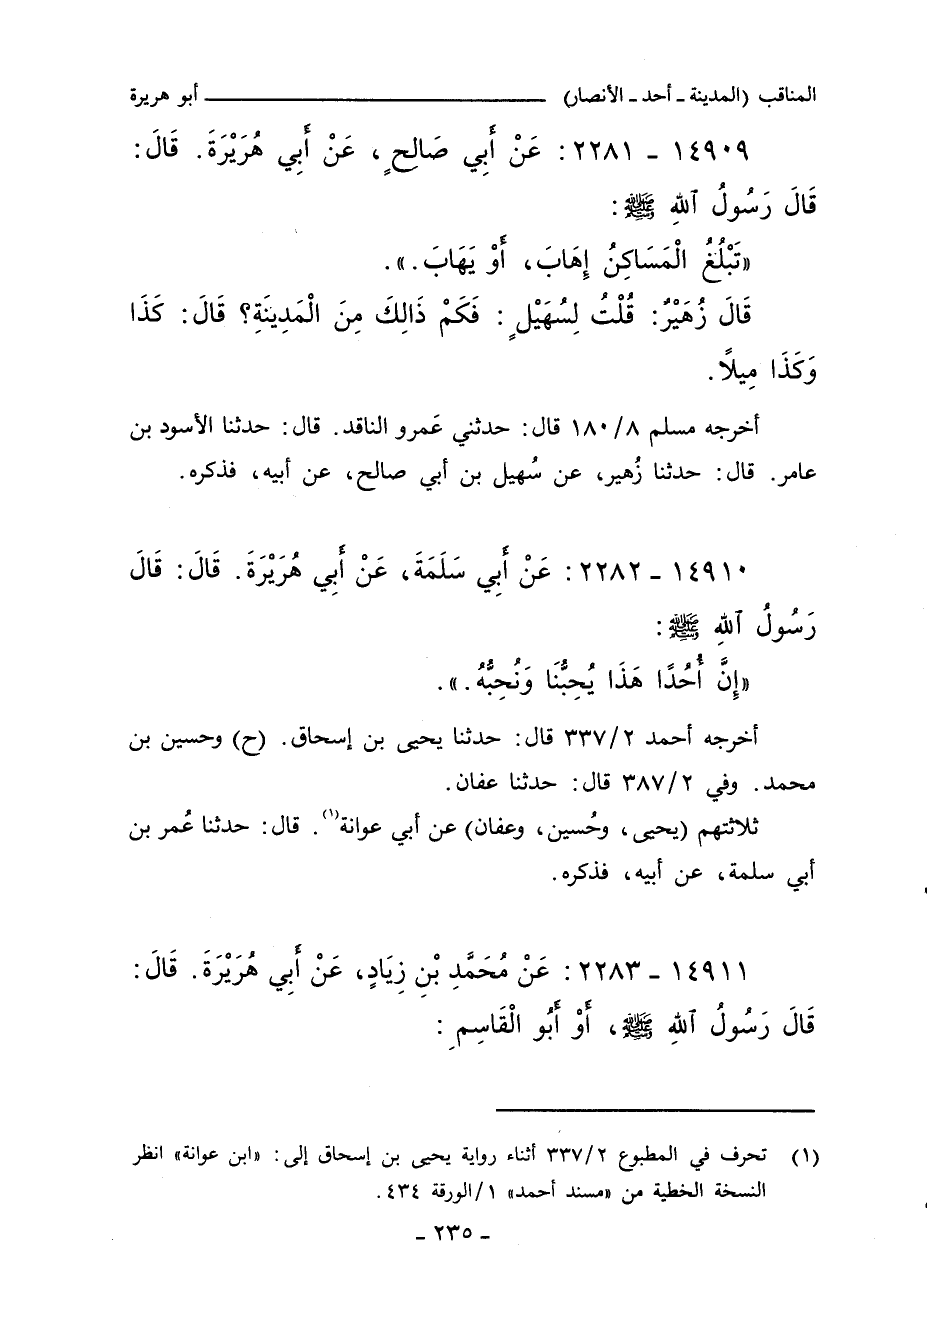 المناقب (المدينة ـ أحد ـ الأنصار) ــــــــــــــــــــ أبو هريرة
١٤٩٠٩ ـ ٢٢٨١ : عَنْ أَبِي صَالِحٍ ، عَنْ أَبِي هُرَيْرَةَ . قَالَ :
قَالَ رَسُولُ ٱللهِ ﷺ :
«تَبْلُغُ الْمَسَاكِنُ إِهَابَ ، أَوْ يَهَابَ . » .
قَالَ زُهَيْرٌ : قُلْتُ لِسُهَيْلٍ : فَكَمْ ذَالِكَ مِنَ الْمَدِينَةِ؟ قَالَ : كَذَا
وَكَذَا مِيلاً .
أخرجه مسلم ٨/ ١٨٠ قال : حدثني عَمرو الناقد . قال : حدثنا الأسود بن
عامر . قال : حدثنا زُهير ، عن سُهيل بن أبي صالح ، عن أبيه ، فذكره .
١٤٩١٠ ـ ٢٢٨٢ : عَنْ أَبِي سَلَمَةَ ، عَنْ أَبِي هُرَيْرَةَ . قَالَ : قَالَ
رَسُولُ ٱللهِ ﷺ :
«إِنَّ أُحُدًا هَذَا يُحِبُّنَا وَنُحِبُّهُ . » .
أخرجه أحمد ٢/ ٣٣٧ قال : حدثنا يحيى بن إسحاق . (ح) وحسين بن
محمد . وفي ٢/ ٣٨٧ قال : حدثنا عفان .
ثلاثتهم (يحيى ، وحُسين ، وعفان) عن أبي عوانة(١) . قال : حدثنا عُمر بن
أبي سلمة ، عن أبيه ، فذكره .
١٤٩١١ ـ ٢٢٨٣ : عَنْ مُحَمَّدِ بْنِ زِيَادٍ ، عَنْ أَبِي هُرَيْرَةَ . قَالَ :
قَالَ رَسُولُ ٱللهِ ﷺ ، أَوْ أَبُو الْقَاسِمِ :
(١) تحرف في المطبوع ٢/ ٣٣٧ أثناء رواية يحيى بن إسحاق إلى : «ابن عوانة» انظر
النسخة الخطية من «مسند أحمد» ١/الورقة ٤٣٤ .
ـ ٢٣٥ ـ